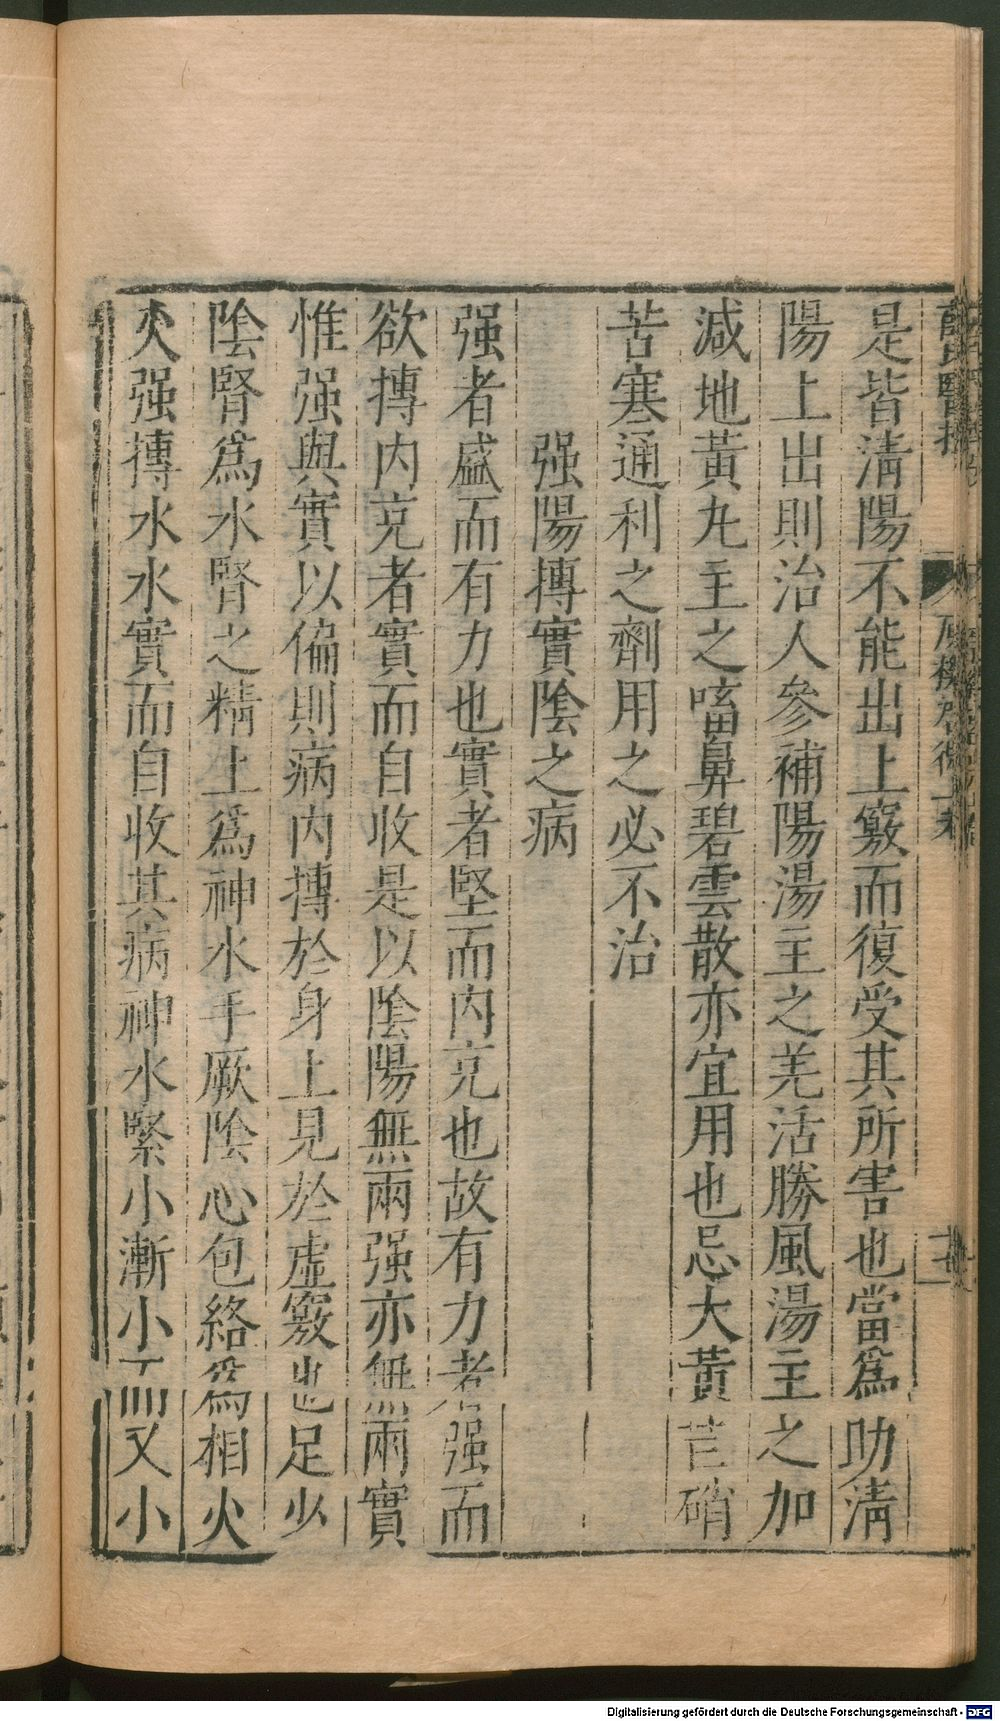 薛氏醫按 原機啓微上卷
是皆淸陽不能出上竅而復受其所害也當爲助淸
陽上出則治人參補陽湯主之羌活勝風湯主之加
減地黃丸主之㗜鼻碧雲散亦宜用也忌大黃芒硝
苦寒通利之劑用之必不治
强陽摶實陰之病
强者盛而有力也實者堅而內充也故有力者强而
欲摶內充者實而自收是以陰陽無兩强亦無兩實
惟强與實以偏則病內摶於身上見於虛竅也足少
陰腎爲水腎之精上爲神水手厥陰心包絡爲相火
火强摶水水實而自收其病神水緊小漸小而又小
Digitalisierung gefördert durch die Deutsche Forschungsgemeinschaft - DFG